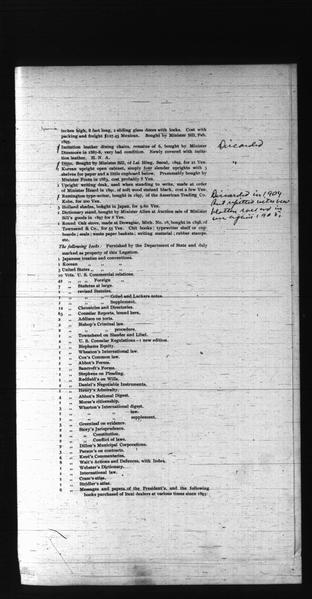 inches high, 8 feet long, 2 sliding glass doors with locks. Cost with
packing and freight $127.45 Mexican. Bought by Minister Sill, Feb.
1895.
Imitation leather dining chairs, remains of 6, bought by Minister
Dinsmore in 1887-8, very bad condition. Newly covered with imita-
tion leather. H. N. A.
Discarded
Ditto. Bought by Minister Sill, of Lai Hing, Seoul, 1894, for 21 Yen.
Korean upright open cabinet, simply four slender uprights with 3
shelves for paper and a little cupboard below. Presumably bought by
Minister Foote in 1883, cost probably 8 Yen.
1 Upright writing desk, used when standing to write, made at order
of Minister Heard in 1891, of soft wood stained black, cost a few Yen.
1 Remington type-writer, bought in 1897, of the American Trading Co.
Kobe, for 200 Yen.
Discarded in 1904
2 Holland shades, bought in Japan, for 9.60 Yen.
1 Dictionary stand, bought by Minister Allen at Auction sale of Minister
Sill's goods in 1897 for 2 Yen.
1 Round Oak stove, made at Dowagiac, Mich. No. 18, bought in 1898, of
Townsend & Co., for 55 Yen. Chit books; typewriter shelf or cup-
boards; seals; waste paper baskets; writing material; rubber stamps.
etc.
The following books: Furnished by the Department of State and duly
marked as property of this Legation.
1 Japanese treaties and conventions.
1 Korean " " "
3 United States " "
10 Vols. U. S. Commercial relations.
" " Foreign "
7 " Statutes at large.
" revised Statutes.
" " Supplement.
" Chronicles and Directories.
" Consular Reports, bound here.
2 " Addison on torts.
" Bishop's Criminal law.
" " " procedure.
" Townshend on Slander and Libel.
" U. S. Consular Regulations—1 new edition.
" Bisphams Equity.
" Wheaton's International law.
" Cox's Common law.
" Abbot's Forms.
" Bancroft's Forms.
" Stephens on Pleading.
" Redfield's on Wills.
" Daniel's Negotiable Instruments.
" Henry's Admiralty.
" Abbot's National Digest.
" Morse's citizenship.
3 " Wharton's International digest.
" " " law.
" " " supplement.
3 " Greenleaf on evidence.
" Story's Jurisprudence.
" " Constitution.
" " Conflict of laws.
" Dillon's Municipal Corporations.
" Parson's on contracts.
" Kent's Commentaries.
" Wait's Actions and Defences, with Index.
" Webster's Dictionary.
" International law.
" Cram's atlas.
" Stridler's atlas.
" Messages and papers of the President's, and the following
books purchased of Deal dealers at various times since 1893: